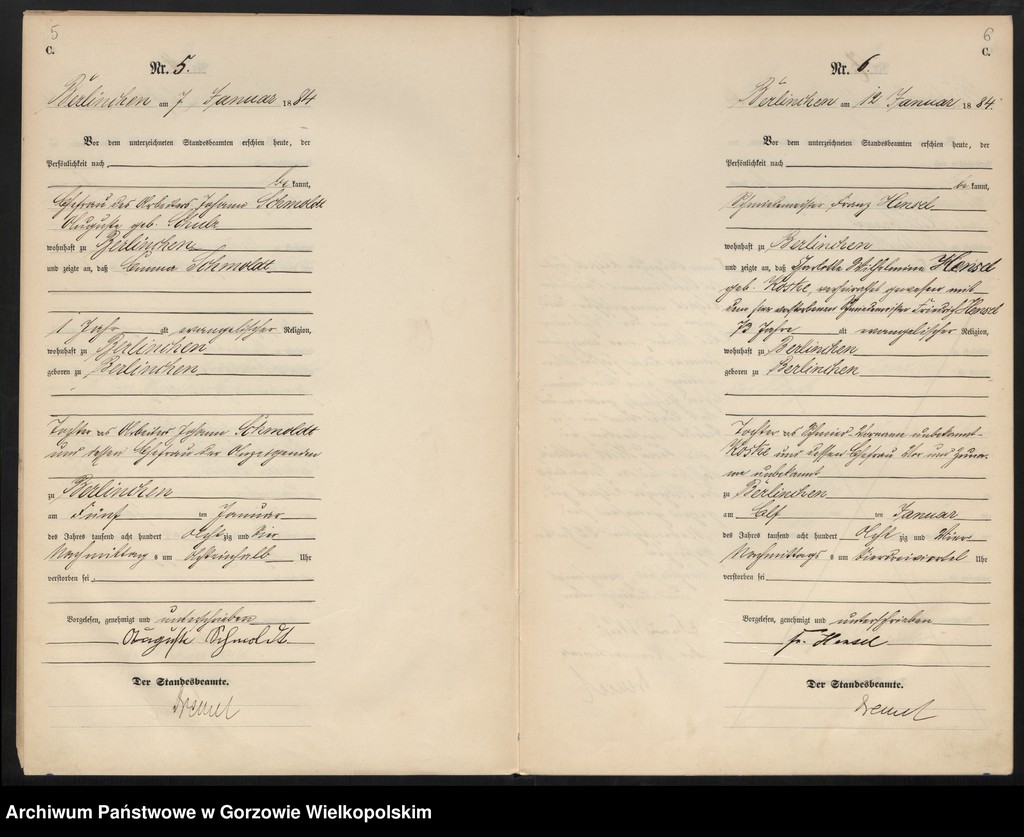 5
C.
Nr. 5.
Berlinchen am 7 Januar 1884
Vor dem unterzeichneten Standesbeamten erschien heute, der
Persönlichkeit nach
be kannt,
Ehefrau des Arbeiters Johann Schmoldt
Auguste geb. Schulz
wohnhaft zu Berlinchen
und zeigte an, daß Emma Schmoldt
1 Jahr alt evangelischer Religion,
wohnhaft zu Berlinchen
geboren zu Berlinchen
Tochter des Arbeiters Johann Schmoldt
und dessen Ehefrau der Anzeigenden
zu Berlinchen
am Fünf ten Januar
des Jahres tausend acht hundert Acht zig und Vier
Nachmittag s um Achteinhalb Uhr
verstorben sei.
Vorgelesen, genehmigt und unterschrieben
Auguste Schmoldt
Der Standesbeamte.
6
C.
Nr. 6.
Berlinchen am 12 Januar 1884.
Vor dem unterzeichneten Standesbeamten erschien heute, der
Persönlichkeit nach
be kannt,
Schmiedemeister Franz Hensel
wohnhaft zu Berlinchen
und zeigte an, daß Charlotte Wilhelmine Hensel
geb. Koske, verheirathet gewesen mit
dem hier verstorbenen Schmiedemeister Friedrich Hensel
73 Jahre alt evangelischer Religion,
wohnhaft zu Berlinchen
geboren zu Berlinchen
Tochter des Schmied Vorname unbekannt
Koske und dessen Ehefrau Vor und Zuna-
me unbekannt
zu Berlinchen
am Elf ten Januar
des Jahres tausend acht hundert Acht zig und Vier
Nachmittags s um Vierdreiviertel Uhr
verstorben sei
Vorgelesen, genehmigt und unterschrieben
Fr. Hensel
Der Standesbeamte.
Archiwum Państwowe w Gorzowie Wielkopolskim